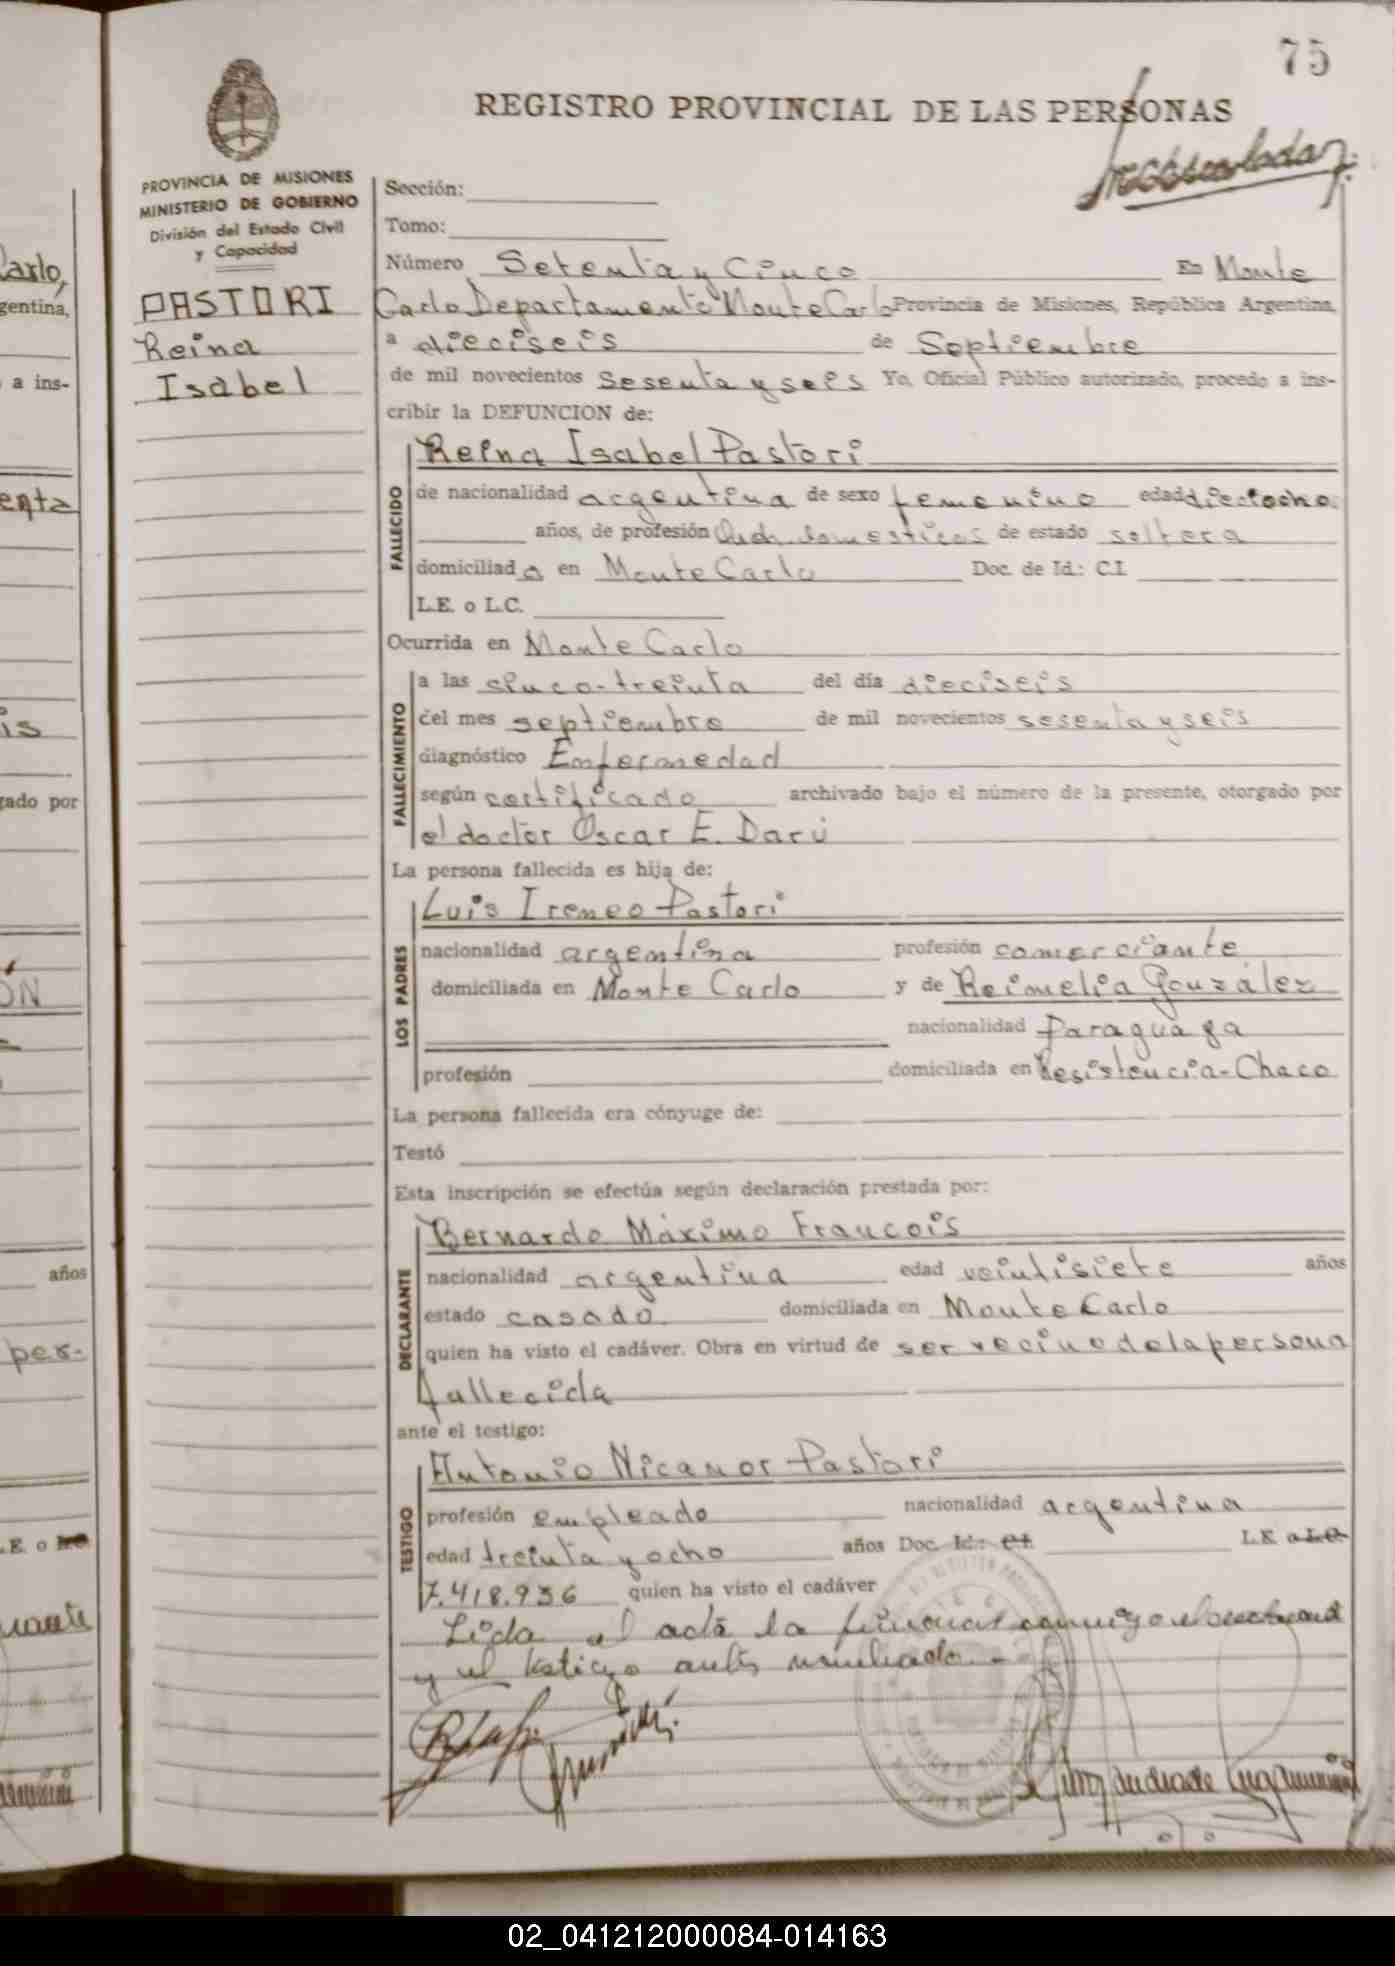 75
REGISTRO PROVINCIAL DE LAS PERSONAS
PROVINCIA DE MISIONES
MINISTERIO DE GOBIERNO
División del Estado Civil
y Capacidad
PASTORI
Reina
Isabel
Sección:
Tomo:
Número Setenta y Cinco En Monte
Carlo Departamento Monte Carlo Provincia de Misiones, República Argentina,
a dieciseis de Septiembre
de mil novecientos Sesenta y seis Yo, Oficial Público autorizado, procedo a ins-
cribir la DEFUNCION de:
FALLECIDO
Reina Isabel Pastori
de nacionalidad argentina de sexo femenino edad dieciocho
años, de profesión Queh. domesticos de estado soltera
domiciliada en Monte Carlo Doc. de Id.: C.I.
L.E. o L.C.
Ocurrida en Monte Carlo
FALLECIMIENTO
a las cinco-treinta del día dieciseis
del mes septiembre de mil novecientos sesenta y seis
diagnóstico Enfermedad
según certificado archivado bajo el número de la presente, otorgado por
el doctor Oscar E. Darú
La persona fallecida es hija de:
LOS PADRES
Luis Ireneo Pastori
nacionalidad argentina profesión comerciante
domiciliada en Monte Carlo y de Reimelia González
nacionalidad Paraguaya
profesión domiciliada en Resistencia-Chaco
La persona fallecida era cónyuge de:
Testó
Esta inscripción se efectúa según declaración prestada por:
DECLARANTE
Bernardo Máximo Francois
nacionalidad argentina edad veintisiete años
estado casado domiciliada en Monte Carlo
quien ha visto el cadáver. Obra en virtud de ser vecino de la persona
fallecida
ante el testigo:
TESTIGO
Antonio Nicanor Pastori
profesión empleado nacionalidad argentina
edad treinta y ocho años Doc. Id.: C.I. L.E. o L.C.
7.418.936 quien ha visto el cadáver
Lida el acta la firman conmigo el declarante
y el testigo antes nombrado.-
02_041212000084-014163